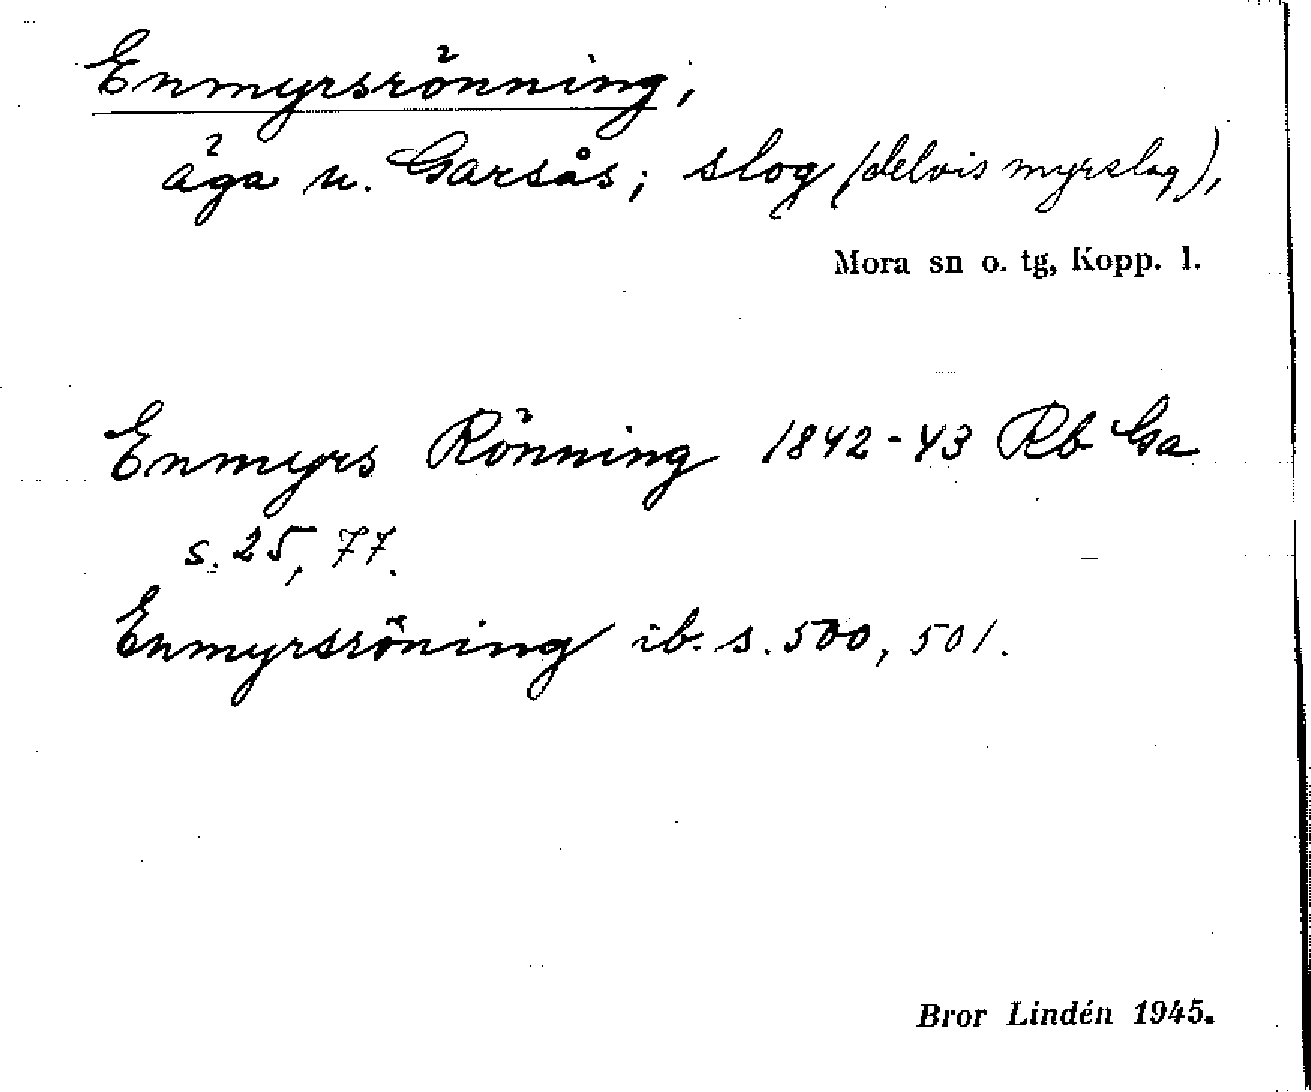 Enmyrsrönning,
äga u. Garsås; slog (delvis myrslog),
Mora sn o. tg, Kopp. l.
Enmyrs Rönning 1842-43 Rb Ga
s. 25, 77.
Enmyrsröning ib. s. 500, 501.
Bror Lindén 1945.